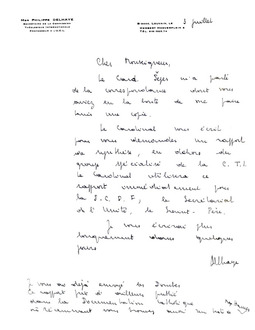 Mgr Philippe DELHAYE
Secrétaire de la Commission
Théologique Internationale
Professeur à l'U.C.L.
3 juillet
Cher Monseigneur,
Le Card. Šeper m'a parlé
de la correspondance dont vous
aviez eu la bonté de me faire
une copie.
Le Cardinal vous écrit
pour vous demander un rapport
de synthèse, en dehors du
groupe spécialisé de la C.T.I.
Le Cardinal utilisera ce
rapport immédiatement pour
la S.C.D.F., le Secrétariat
de l'Unité, le Saint-Père.
Je vous écrirai plus
longuement dans quelques
jours
Delhaye
Je vous ai déjà envoyé les
Ce rapport
dans la Documentation Catholique